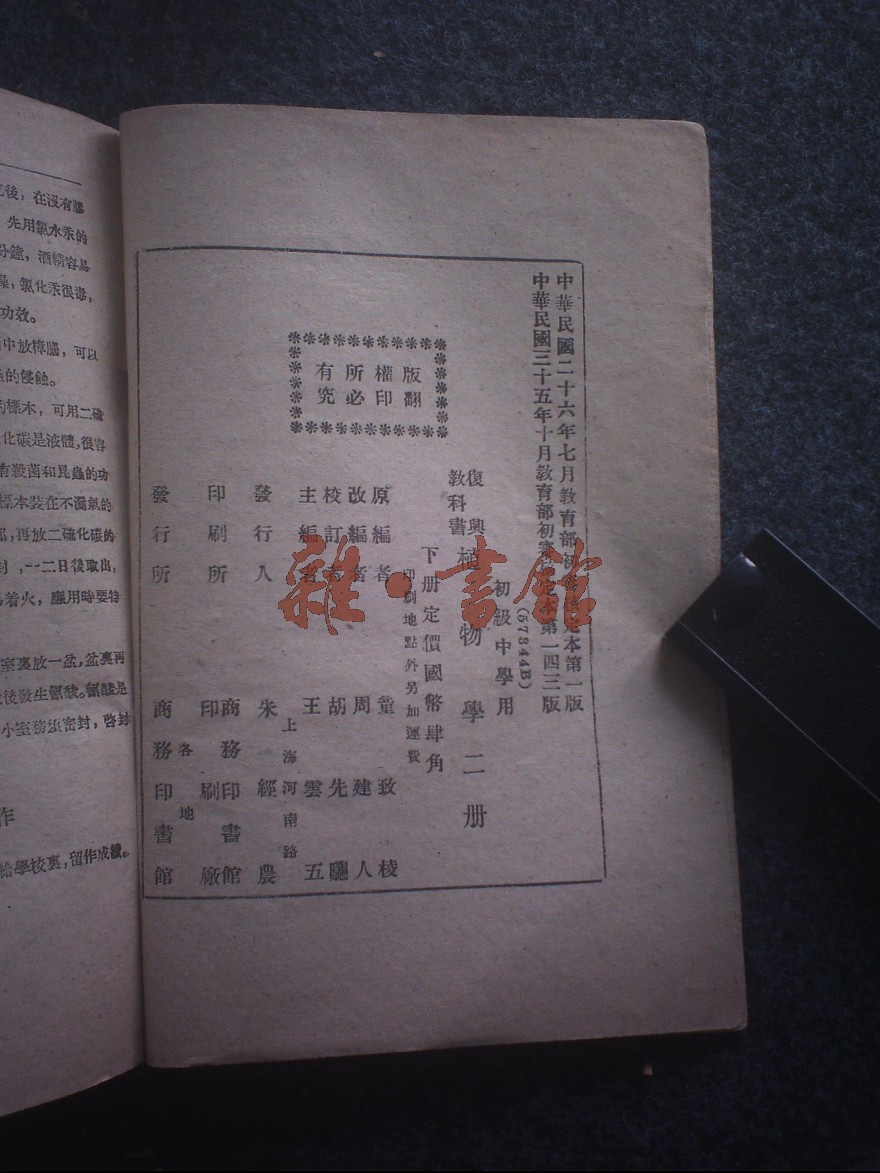 中華民國二十六年七月教育部初審核定本第一版
中華民國三十五年十月教育部初審核定本第一四三版
(57344B)
初級中學用
復興教科書 植物學二册
下册定價國幣肆角
印刷地點外另加運費
版權所有
翻印必究
原編者 童致棱
改編者 周建人
校訂者 胡先驌
主編者 王雲五
上海河南路
發行人 朱經農
印刷所 商務印書館
印刷廠
發行所 商務印書館
各地
雜·書館
後，在沒有
先用氯水汞的
分鐘，酒精容易
氯化汞很毒，
功效。
中放樟腦，可以
的侵蝕。
的標本，可用二硫
化碳是液體，很容
有殺菌和昆蟲的功
標本裝在不漏氣的
部，再放二硫化碳的
，一二日後取出，
着火，應用時要特
室裏放一盆，盆裏再
後發生氰酸。氰酸是
小室務須密封，啓封
作
給學校裏，留作成績。